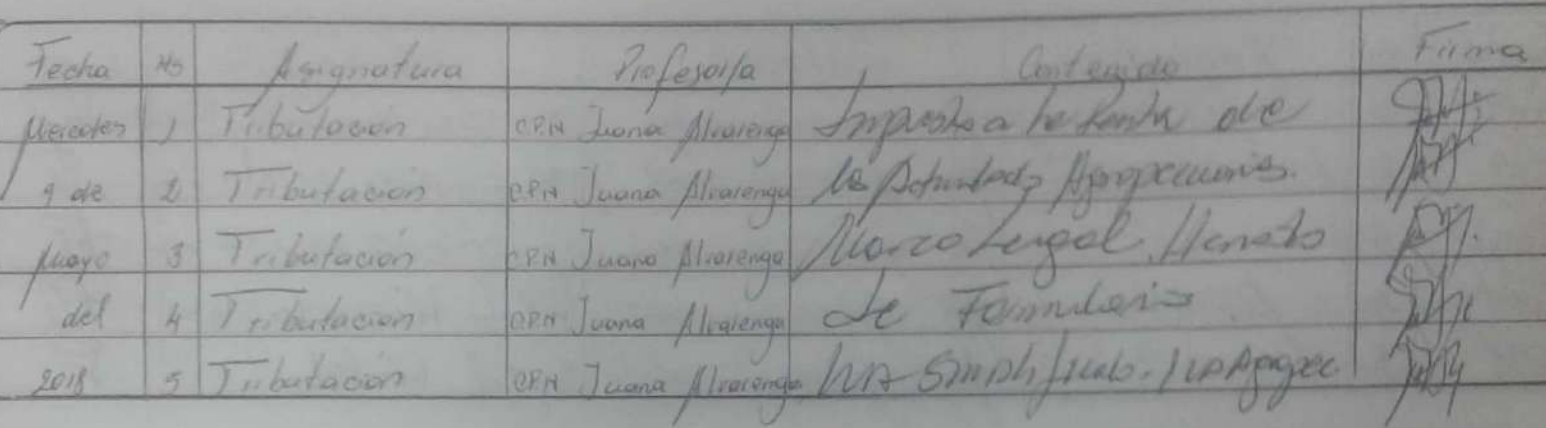 Fecha Hs Asignatura Profesor/a Contenido Firma
Miercoles 1 Tributacion CPN Juana Alvarenga Impuesto a la Renta de
9 de 2 Tributacion CPN Juana Alvarenga las Actividades Agropecuarias.
Mayo 3 Tributacion CPN Juana Alvarenga Marco Legal. Llenado
del 4 Tributacion CPN Juana Alvarenga de Formulario
2018 5 Tributacion CPN Juana Alvarenga IVA Simplificado. IVA Agropec